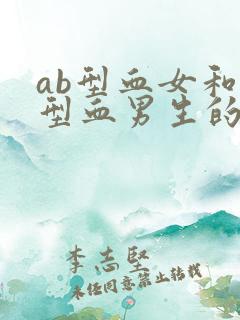 ab型血女和
型血男生的
李志坚
未经同意禁止转载